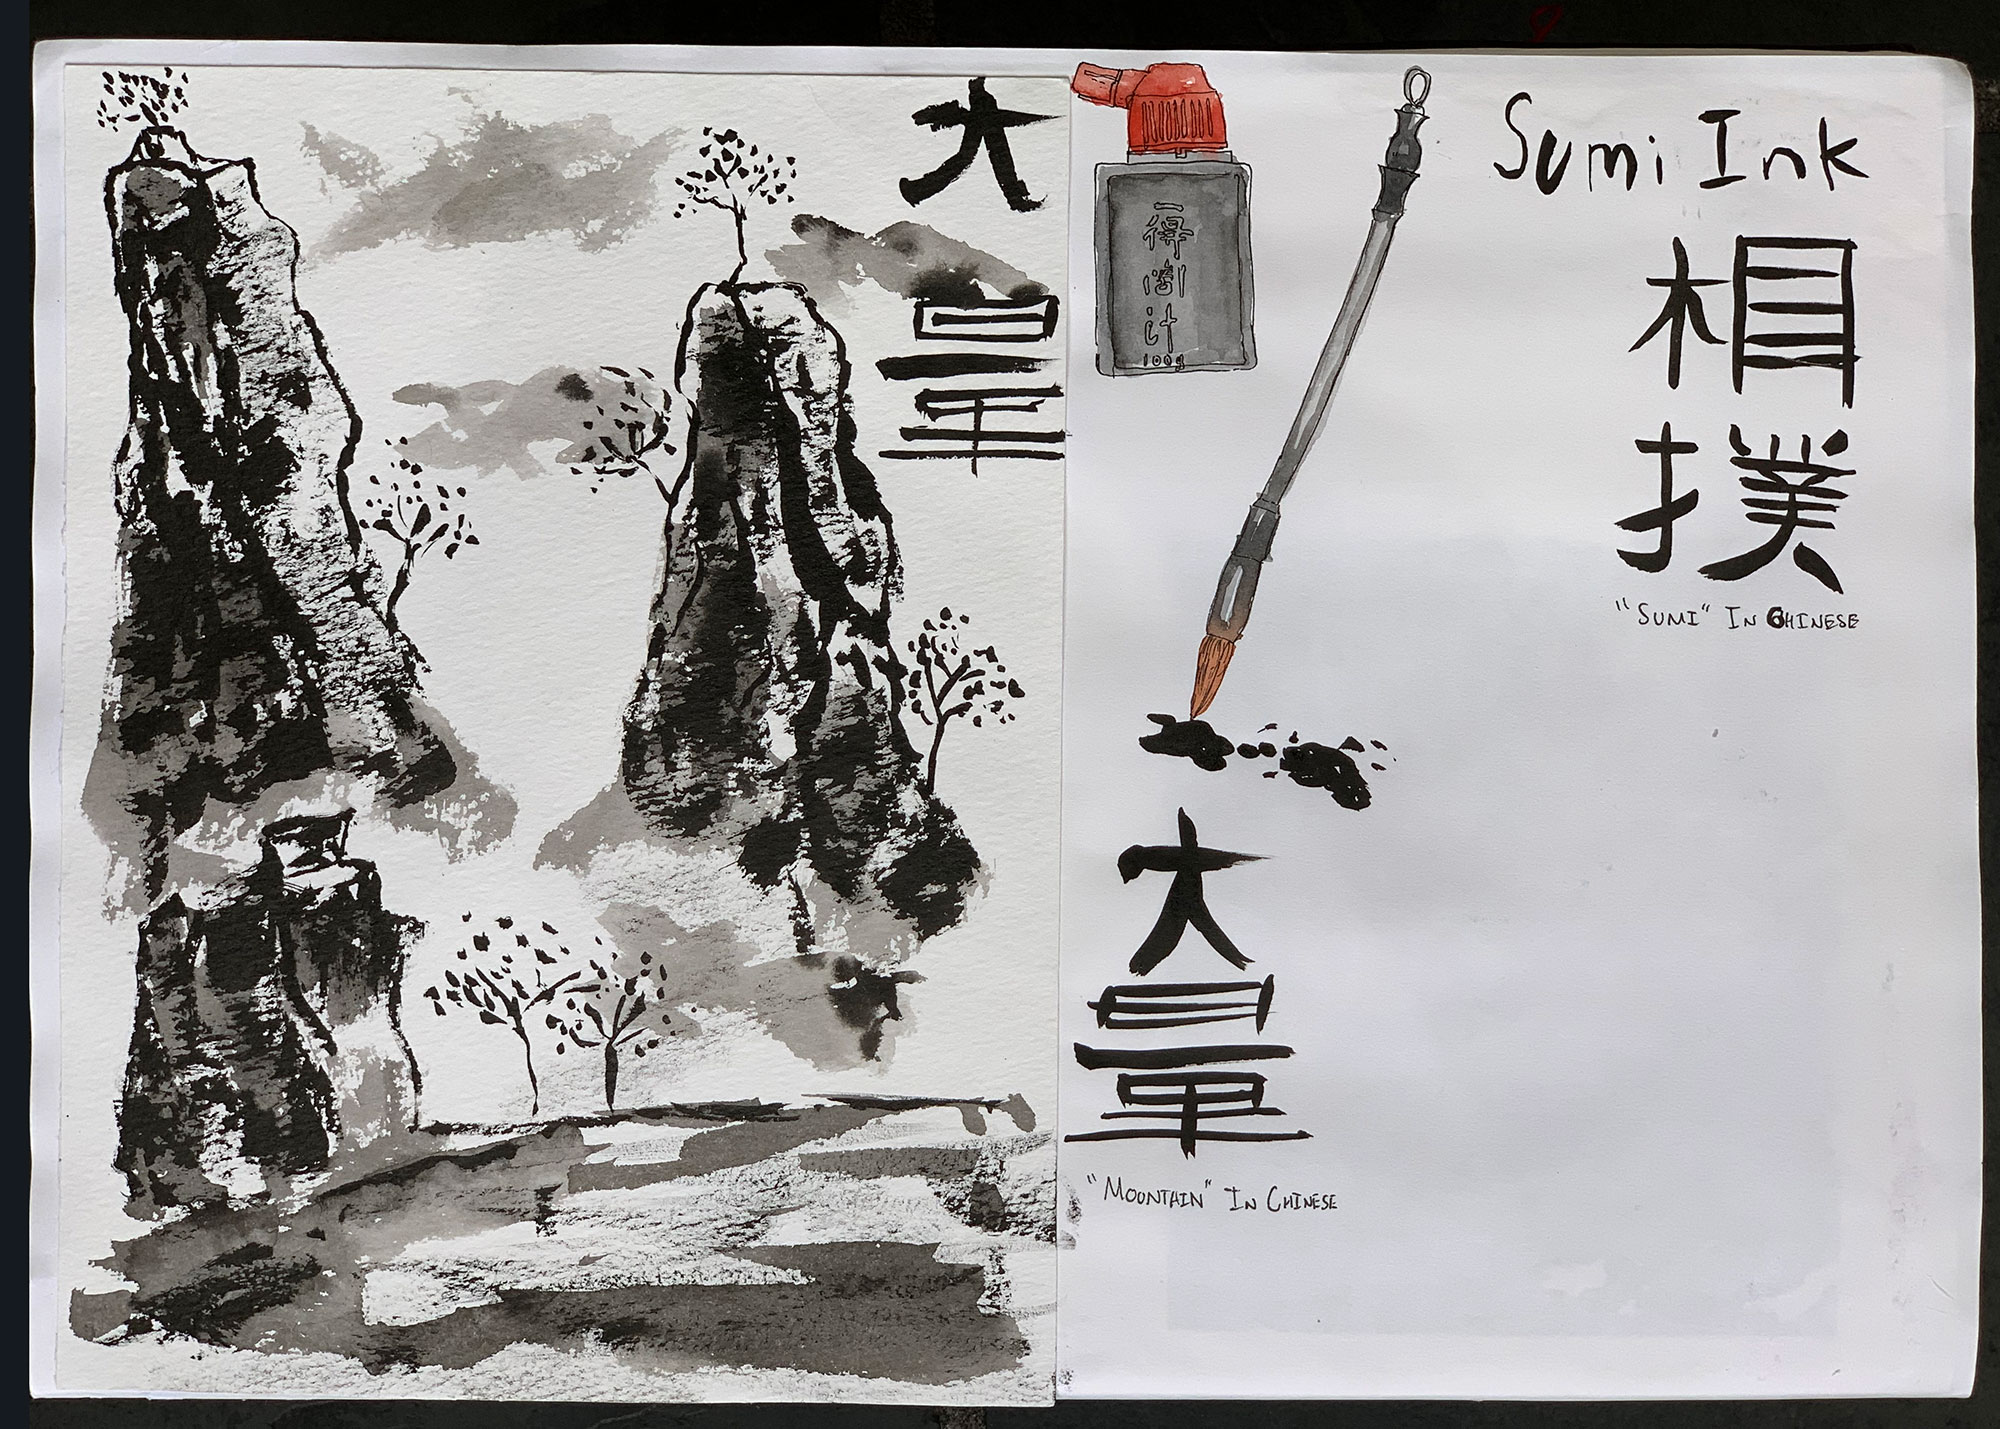 大量
一得阁汁
100g
Sumi Ink
相撲
"SUMI" IN CHINESE
大量
"MOUNTAIN" IN CHINESE